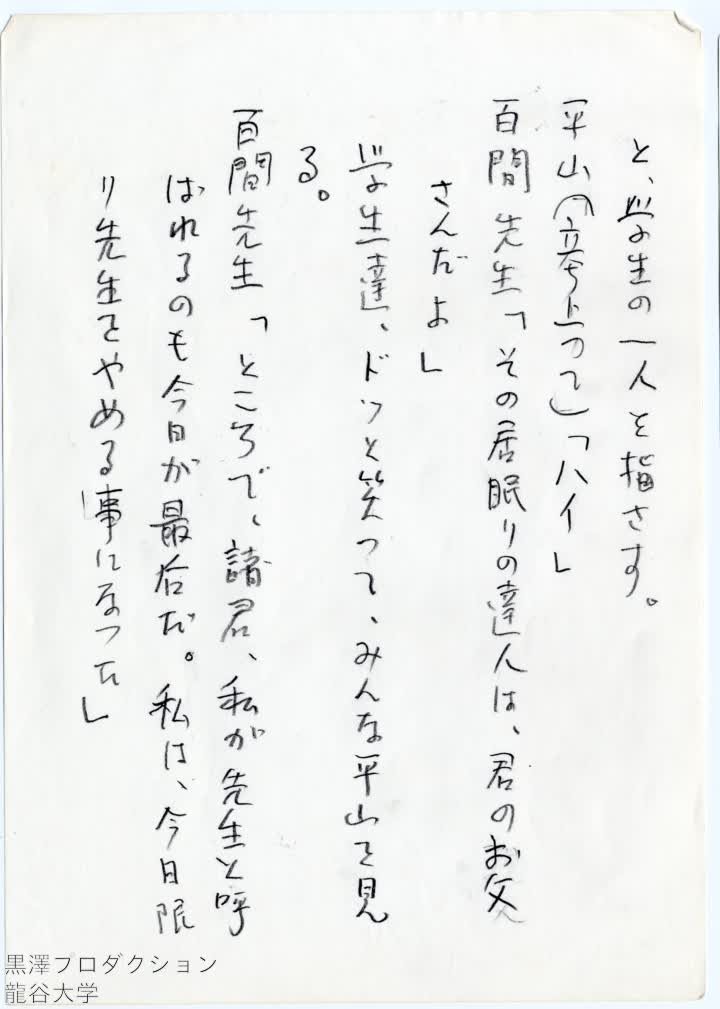 と、学生の一人を指さす。
平山(立ち上って)「ハイ」
百間先生「その居眠りの達人は、君のお父
さんだよ」
学生達、ドッと笑って、みんな平山を見
る。
百間先生「ところで、諸君、私が先生と呼
ばれるのも今日が最后だ。私は、今日限
り先生をやめる事になった」
黒澤プロダクション
龍谷大学